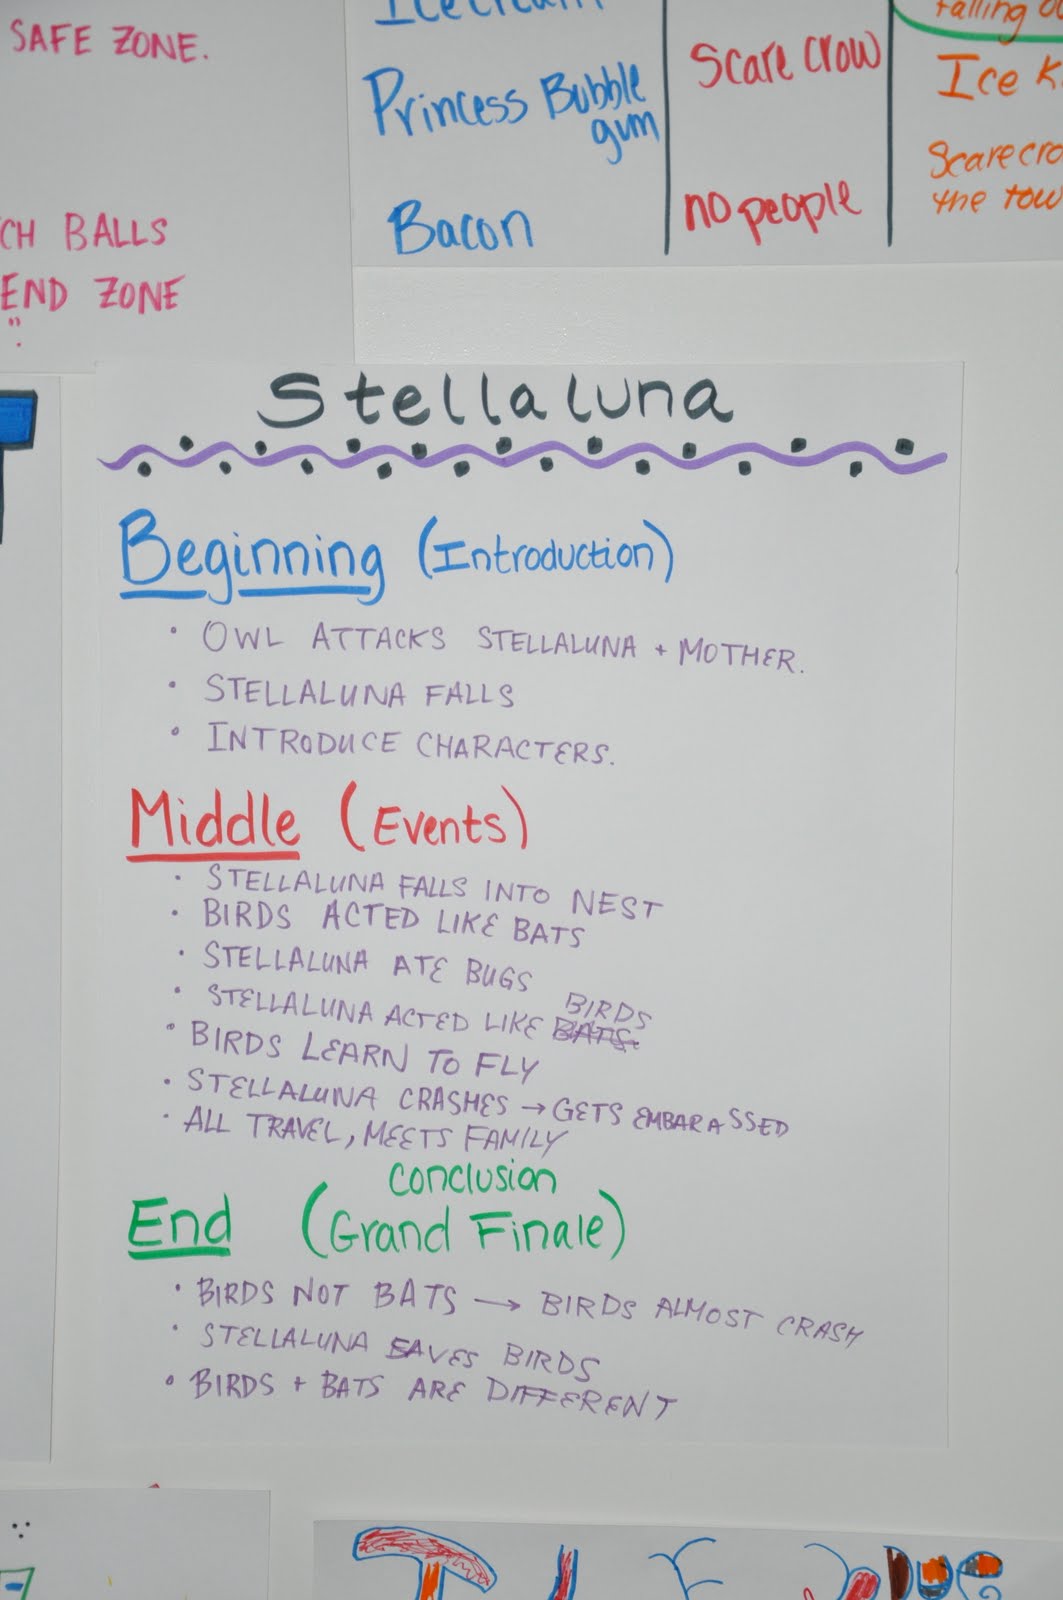 SAFE ZONE.
CH BALLS
END ZONE
Princess Bubble
gum
Bacon
Scare crow
no people
falling
Ice K
Scarecro
the tow
Stellaluna
Beginning (Introduction)
• OWL ATTACKS STELLALUNA + MOTHER.
• STELLALUNA FALLS
• INTRODUCE CHARACTERS.
Middle (Events)
• STELLALUNA FALLS INTO NEST
• BIRDS ACTED LIKE BATS
• STELLALUNA ATE BUGS
• STELLALUNA ACTED LIKE BATS. BIRDS
• BIRDS LEARN TO FLY
• STELLALUNA CRASHES → GETS EMBARASSED
• ALL TRAVEL, MEETS FAMILY
conclusion
End (Grand Finale)
• BIRDS NOT BATS → BIRDS ALMOST CRASH
• STELLALUNA SAVES BIRDS
• BIRDS + BATS ARE DIFFERENT